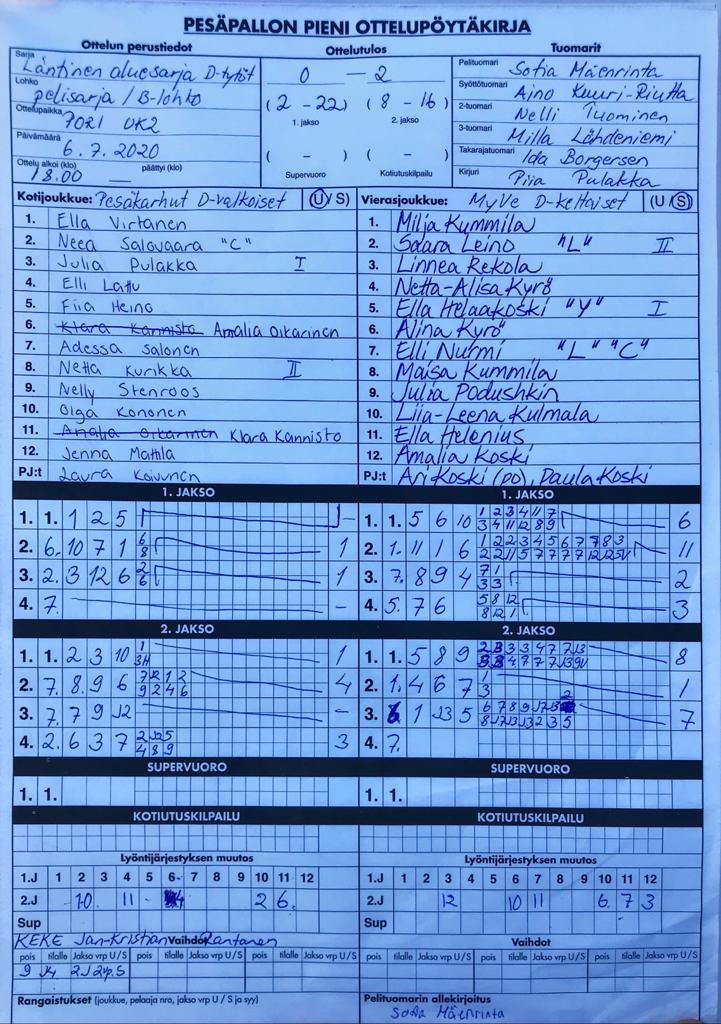 PESÄPALLON PIENI OTTELUPÖYTÄKIRJA
Ottelun perustiedot
Ottelutulos
Tuomarit
Sarja Läntinen aluesarja D-tytöt
Lohko pelisarja / B-lohko
Ottelupaikka PORI UK2
Päivämäärä 6.7.2020
Ottelu alkoi (klo) 18.00 päättyi (klo)
0 — 2
(2 - 22) (8 - 16)
1. jakso 2. jakso
( - ) ( - )
Supervuoro Kotiutuskilpailu
Pelituomari Sofia Mäenrinta
Syöttötuomari Aino Kuuri-Riutta
2-tuomari Nelli Tuominen
3-tuomari Milla Lähdeniemi
Takarajatuomari Ida Borgersen
Kirjuri Piia Pulakka
Kotijoukkue: Pesäkarhut D-valkoiset (U/S)
1. Ella Virtanen
2. Neea Salovaara "C"
3. Julia Pulakka I
4. Elli Lattu
5. Fiia Heino
6. Klara Kannisto Amalia Oikarinen
7. Adessa Salonen
8. Netta Kurikka II
9. Nelly Stenroos
10. Olga Kononen
11. Amalia Oikarinen Klara Kannisto
12. Jenna Mattila
PJ:t Laura Koivunen
Vierasjoukkue: MyVe D-keltaiset (U/S)
1. Milja Kummila
2. Saara Leino "L" II
3. Linnea Rekola
4. Netta-Alisa Kyrö
5. Ella Helaakoski "Y" I
6. Alina Kyrö
7. Elli Nurmi "L" "C"
8. Maisa Kummila
9. Julia Podushkin
10. Liia-Leena Kulmala
11. Ella Helenius
12. Amalia Koski
PJ:t Ari Koski (po), Paula Koski
1. JAKSO
1. 1. 1 2 5 -
2. 6. 10 7 1 6 8 1
3. 2. 3 12 6 2 6 1
4. 7. -
2. JAKSO
1. 1. 2 3 10 1 3H 1
2. 7. 8. 9 6 4
3. 7. 7 9 12 -
4. 2. 6 3 7 3
SUPERVUORO
1. 1.
KOTIUTUSKILPAILU
1. JAKSO
1. 1. 5 6 10 1 2 3 4 11 7 6
3 4 11 12 8 9
2. 1. 11 1 6 1 2 2 3 4 5 6 7 7 8 3 11
3. 7. 8 9 4 7 1 2
3 3
4. 5. 7 6 5 8 12 3
8 12 1
2. JAKSO
1. 1. 5 8 9 8
2. 1. 4 6 7 1 3 1
3. 1 13 5 7
4. 7.
SUPERVUORO
1. 1.
KOTIUTUSKILPAILU
Lyöntijärjestyksen muutos
1.J 1 2 3 4 5 6 7 8 9 10 11 12
2.J 10 11 2 6
Sup
Lyöntijärjestyksen muutos
1.J 1 2 3 4 5 6 7 8 9 10 11 12
2.J 12 10 11 6 7 3
Sup
KEKE Jan-Kristian Rantanen
Vaihdot
pois tilalle Jakso vrp U/S pois tilalle Jakso vrp U/S pois tilalle Jakso vrp U/S
9 14 2J 2vp.S
Vaihdot
pois tilalle Jakso vrp U/S pois tilalle Jakso vrp U/S pois tilalle Jakso vrp U/S
Rangaistukset (joukkue, pelaaja nro, jakso vrp U / S ja syy)
Pelituomarin allekirjoitus
Sofia Mäenrinta